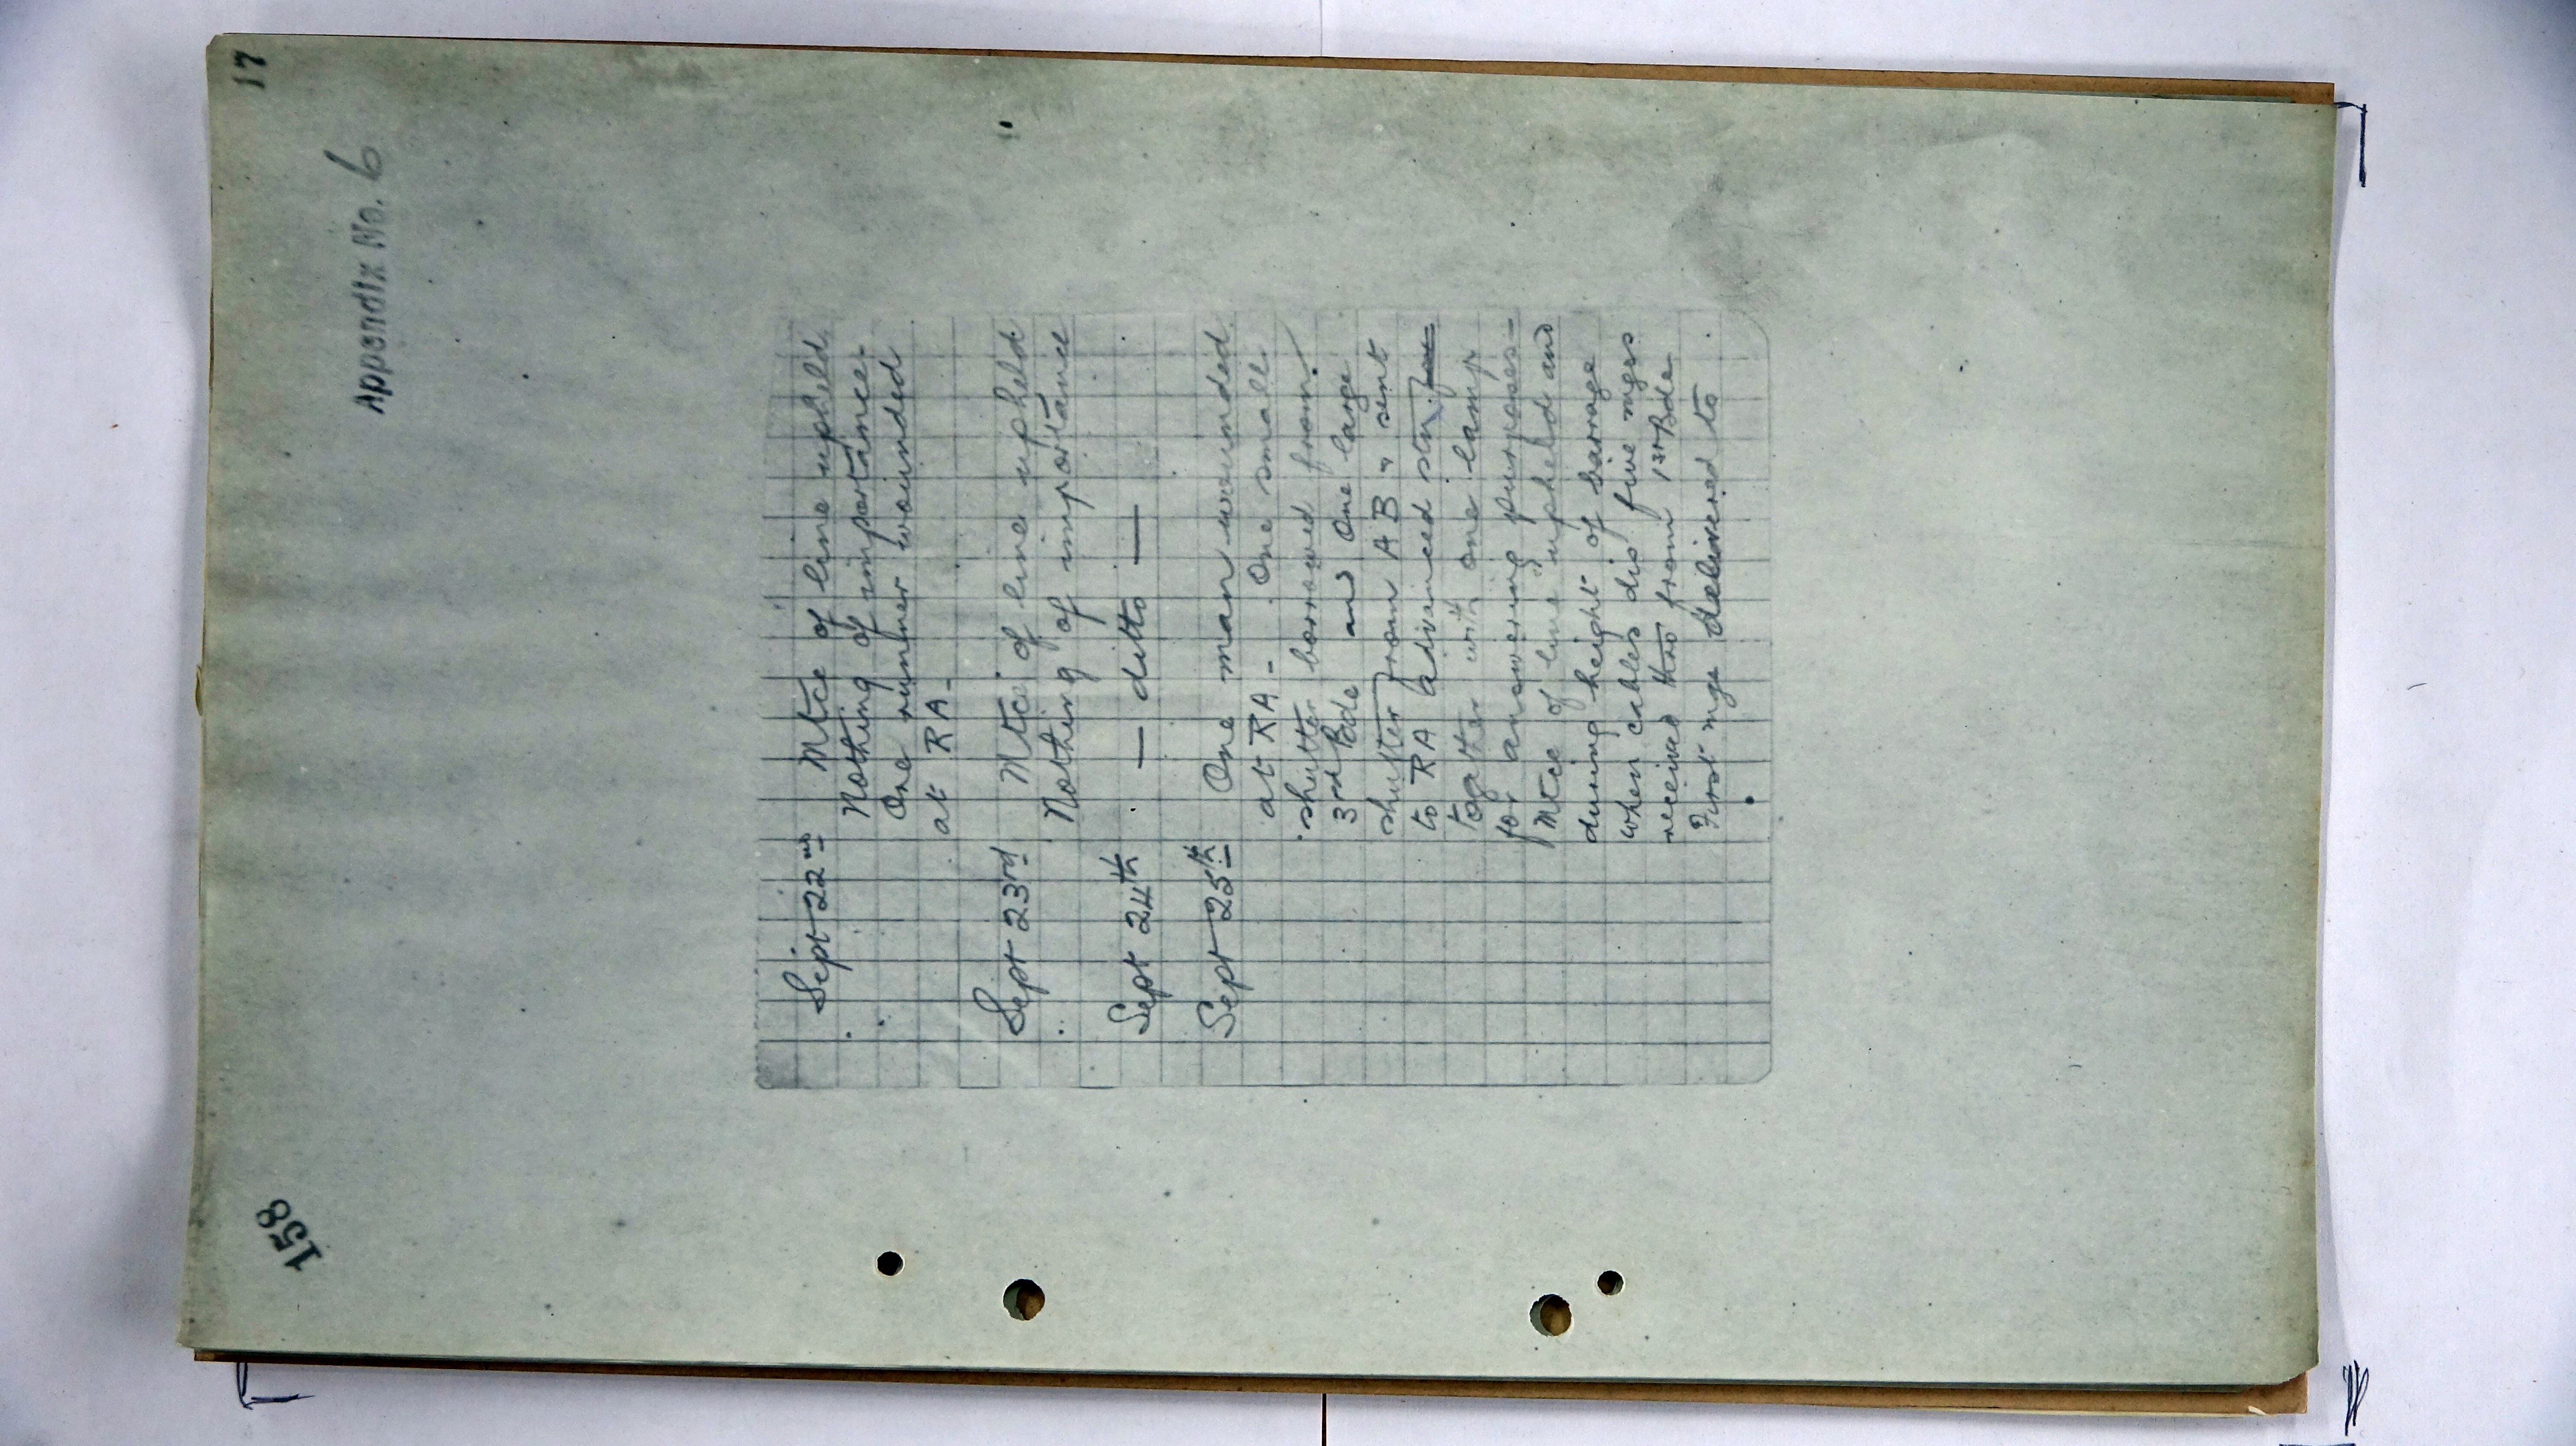 17
Appendix No. 6
158
Sept 22nd Mtce of line upheld
Nothing of importance.
One runner wounded
at RA -
Sept 23rd Mtce of line upheld
Nothing of importance
Sept 24th — ditto —
Sept 25th One man wounded
at RA - One small
shutter borrowed from
3rd Bde and One large
shutter from AB & sent
to RA advanced stn.
together with one lamp
for answering purposes -
Mtce of line upheld and
during height of barrage
when cables dis five mges
received thro from 1st Bde
First mge delivered to